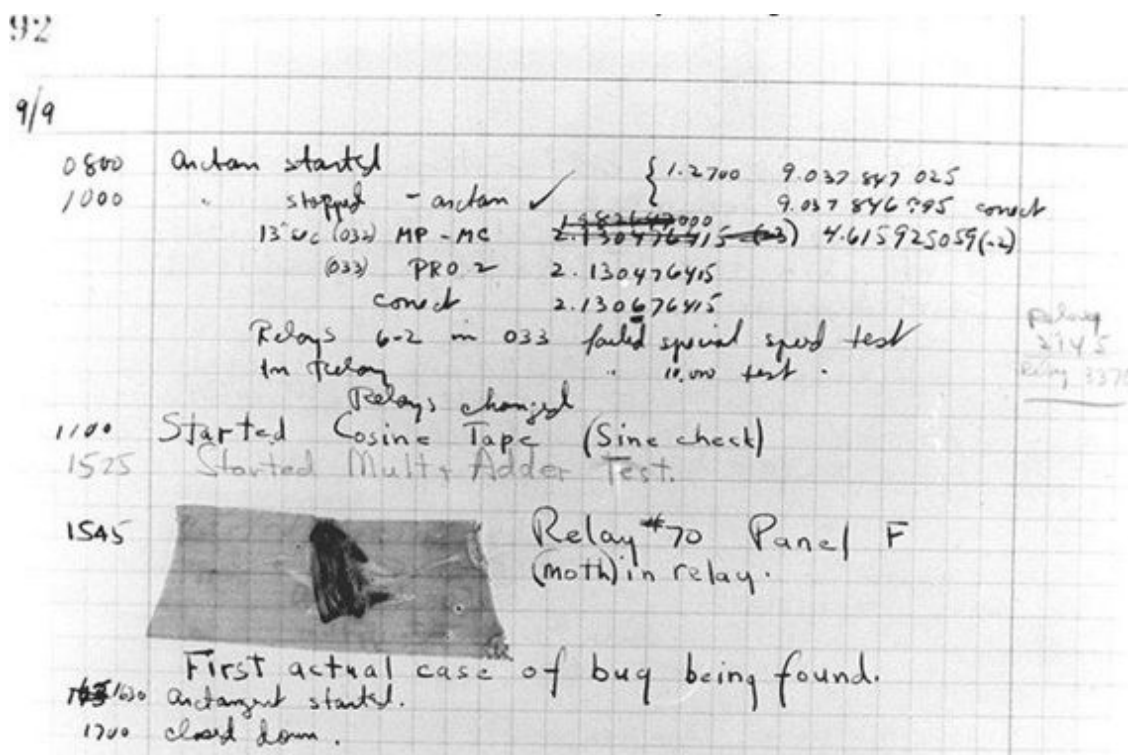 92
9/9
0800 arctan started { 1.2700 9.037 847 025
1000 " stopped - arctan ✓ 9.037 846 995 correct
13"uc (032) MP - MC 2.130476415 (-3) 4.615925059(-2)
(033) PRO 2 2.130476415
correct 2.130676415
Relays 6-2 in 033 failed special speed test
In Relay " 10,000 test .
Relay
2145
Relay 3370
Relays changed
1100 Started Cosine Tape (Sine check)
1525 Started Mult + Adder Test.
1545 Relay #70 Panel F
(moth) in relay.
First actual case of bug being found.
1630 arctangent started.
1700 closed down.